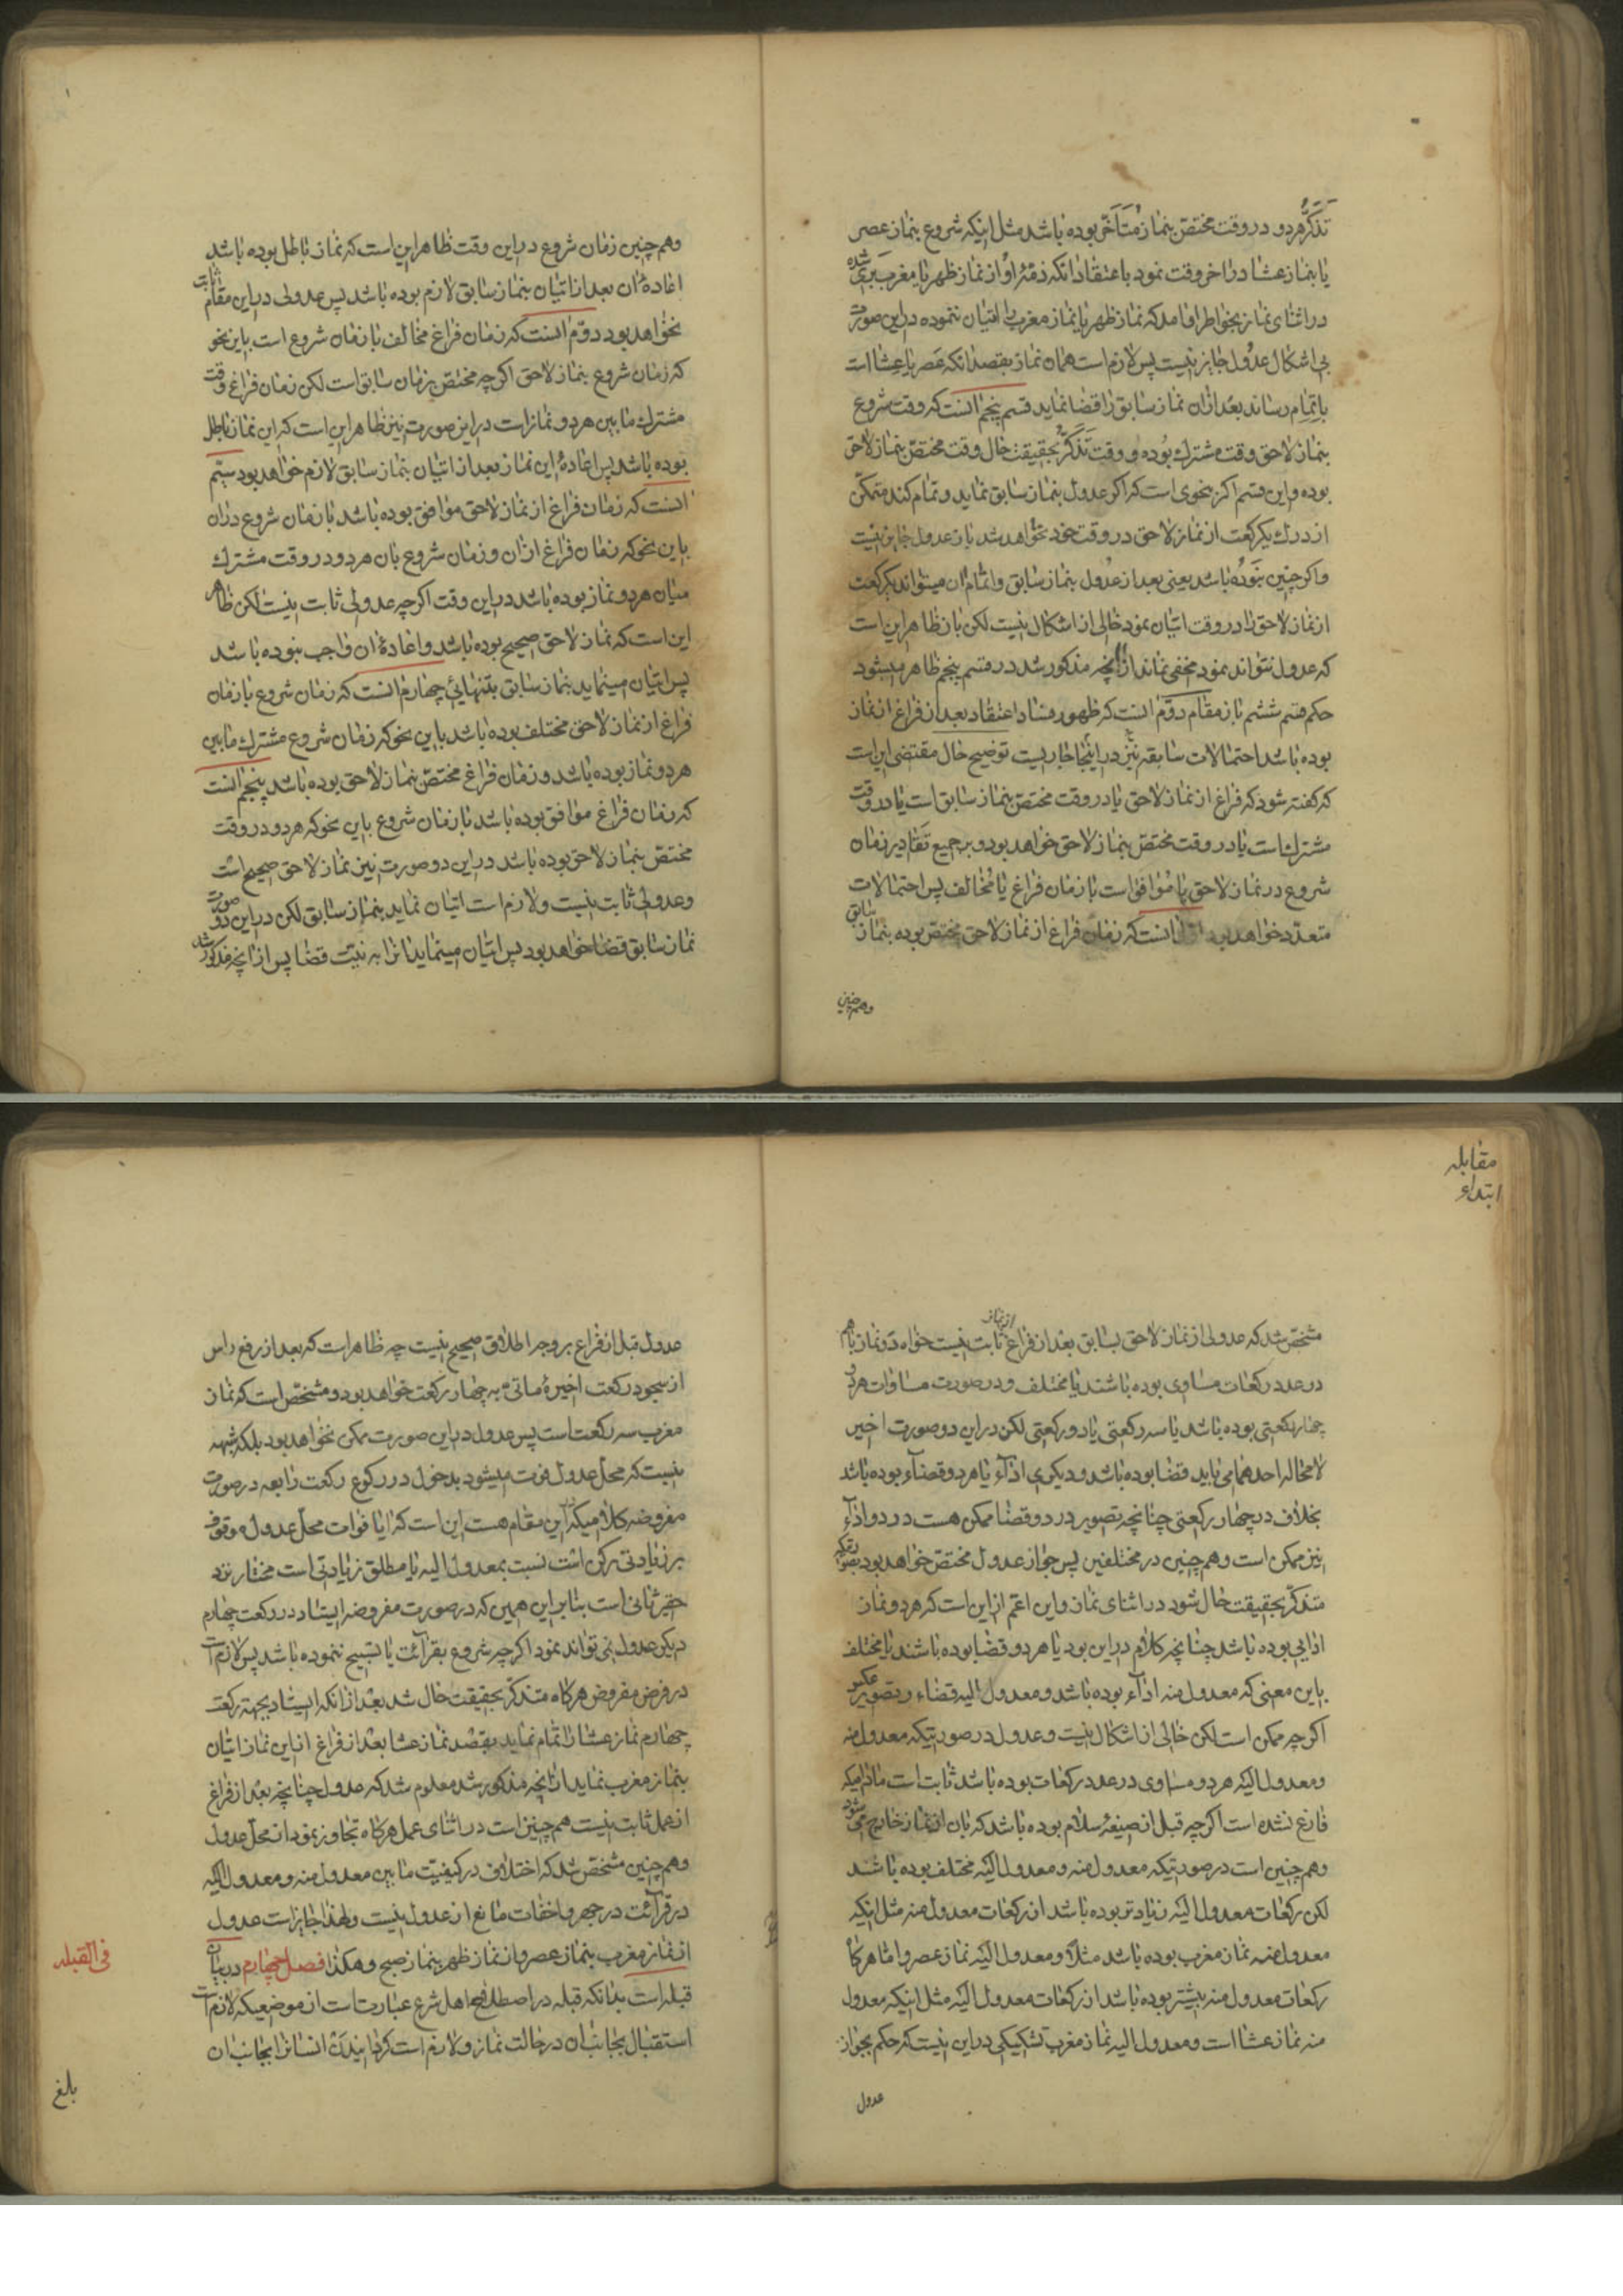 تذکّر هر دو در وقت مختصّ بنماز متأخّر بوده باشد مثل اینکه شروع بنماز عصر
یا بنماز عشا در اخر وقت نمود باعتقاد انکه ذمّۀ او از نماز ظهر یا مغرب بری شده
در اثنای نماز بخواطر او امد که نماز ظهر یا نماز مغرب را اتیان ننموده در این صورت
بی اشکال عدول جایز نیست پس لازم است همان نماز بقصد انکه عصر یا عشا است
باتمام رساند بعد از ان نماز سابق را قضا نماید قسم پنجم انست که وقت شروع
بنماز لاحق وقت مشترك بوده و وقت تذکّر بحقیقت حال وقت مختصّ بنماز لاحق
بوده و این قسم اکر بنحوی است که اکر عدول بنماز سابق نماید و تمام کند متمکّن
از درك یکرکعت از نماز لاحق در وقت خود نخواهد شد باز عدول جایز نیست
و اکر چنین نبوده باشد یعنی بعد از عدول بنماز سابق و اتمام ان میتواند یکرکعت
از نماز لاحق را در وقت اتیان نمود خالی از اشکال نیست لکن باز ظاهر این است
که عدول نتواند نمود مخفی نماند از انچه مذکور شد در قسم پنجم ظاهر میشود
حکم قسم ششم باز مقام دوّم انست که ظهور فساد اعتقاد بعد از فراغ از نماز
بوده باشد احتمالات سابقه نیز در اینجا جاریست توضیح حال مقتضی این است
که کفته شود که فراغ از نماز لاحق یا در وقت مختصّ بنماز سابق است یا در وقت
مشترك است یا در وقت مختصّ بنماز لاحق خواهد بود و بر جمیع تقادیر زمان
شروع در نماز لاحق یا موافق است با زمان فراغ یا مخالف پس احتمالات
متعدّد خواهد بود اوّل انست که زمان فراغ از نماز لاحق مختصّ بوده بنماز سابق
وهم چنین
وهم چنین زمان شروع در این وقت ظاهر این است که نماز باطل بوده باشد
اعادۀ ان بعد از اتیان بنماز سابق لازم بوده باشد پس عدولی در این مقام ثابت
نخواهد بود دوّم انست که زمان فراغ مخالف با زمان شروع است باین نحو
که زمان شروع بنماز لاحق اکرچه مختصّ بزمان سابق است لکن زمان فراغ وقت
مشترك ما بین هر دو نماز است در این صورت نیز ظاهر این است که این نماز باطل
بوده باشد پس اعادۀ این نماز بعد از اتیان بنماز سابق لازم خواهد بود سیّم
انست که زمان فراغ از نماز لاحق موافق بوده باشد با زمان شروع در ان
باین نحو که زمان فراغ از ان و زمان شروع بان هر دو در وقت مشترك
میان هر دو نماز بوده باشد در این وقت اکرچه عدولی ثابت نیست لکن ظاهر
این است که نماز لاحق صحیح بوده باشد و اعادۀ ان واجب نبوده باشد
پس اتیان مینماید بنماز سابق بتنهائی چهارم انست که زمان شروع با زمان
فراغ از نماز لاحق مختلف بوده باشد باین نحو که زمان شروع مشترك ما بین
هر دو نماز بوده باشد و زمان فراغ مختصّ بنماز لاحق بوده باشد پنجم انست
که زمان فراغ موافق بوده باشد با زمان شروع باین نحو که هر دو در وقت
مختصّ بنماز لاحق بوده باشد در این دو صورت نیز نماز لاحق صحیح است
و عدولی ثابت نیست و لازم است اتیان نماید بنماز سابق لکن در این دو صورت
نماز سابق قضا خواهد بود پس اتیان مینماید انرا به نیّت قضا پس از انچه مذکور شد
مقابله
ابتداء
مشخّص شد که عدولی از نماز لاحق بسابق بعد از فراغ از نماز ثابت نیست خواه دو نماز باهم
در عدد رکعات مساوی بوده باشند یا مختلف و در صورت مساوات هر دو
چهار رکعتی بوده باشد یا سه رکعتی یا دو رکعتی لکن در این دو صورت اخیر
لا محاله احدهما می باید قضا بوده باشد و دیکری اداء یا هر دو قضاء بوده باشد
بخلاف در چهار رکعتی چنانچه تصویر در دو قضا ممکن هست در دو اداء
نیز ممکن است وهم چنین در مختلفین پس جواز عدول مختصّ خواهد بود بصورتیکه
متذکّر بحقیقت حال شود در اثنای نماز و این اعم از این است که هر دو نماز
ادایی بوده باشد چنانچه کلام در این بود یا هر دو قضا بوده باشند یا مختلف
باین معنی که معدول منه اداء بوده باشد و معدول الیه قضاء و تصویر عکس
اکرچه ممکن است لکن خالی از اشکال نیست و عدول در صورتیکه معدول منه
و معدول الیه هر دو مساوی در عدد رکعات بوده باشد ثابت است مادامیکه
فارغ نشده است اکرچه قبل از صیغۀ سلام بوده باشد که بان از نماز خارج می شود
وهم چنین است در صورتیکه معدول منه و معدول الیه مختلف بوده باشد
لکن رکعات معدول الیه زیادتر بوده باشد از رکعات معدول منه مثل اینکه
معدول منه نماز مغرب بوده باشد مثلاً و معدول الیه نماز عصر و اما هرکاه
رکعات معدول منه بیشتر بوده باشد از رکعات معدول الیه مثل اینکه معدول
منه نماز عشا است و معدول الیه نماز مغرب تشکیکی در این نیست که حکم بجواز
عدول
عدول قبل از فراغ بر وجه اطلاق صحیح نیست چه ظاهر است که بعد از رفع راس
از سجود رکعت اخیرۀ ماتیّ به چهار رکعت خواهد بود و مشخّص است که نماز
مغرب سه رکعت است پس عدول در این صورت ممکن نخواهد بود بلکه شبهه
نیست که محلّ عدول فوت میشود بدخول در رکوع رکعت رابعه در صورت
مفروضه کلامیکه در این مقام هست این است که ایا فوات محلّ عدول موقوف
بر زیادتی رکن است نسبت بمعدول الیه یا مطلق زیادتی است مختار نزد
حقیر ثانی است بنابر این همین که در صورت مفروضه ایستاد در رکعت چهارم
دیکر عدول نمی تواند نمود اکرچه شروع بقرائت یا تسبیح ننموده باشد پس لازم است
در فرض مفروض هرکاه متذکّر بحقیقت حال شد بعد از انکه ایستاد بجهة رکعت
چهارم نماز عشا را تمام نماید بقصد نماز عشا بعد از فراغ از این نماز اتیان
بنماز مغرب نماید از انچه مذکور شد معلوم شد که عدول چنانچه بعد از فراغ
از عمل ثابت نیست هم چنین است در اثنای عمل هرکاه تجاوز نمود از محلّ عدول
وهم چنین مشخّص شد که اختلاف در کیفیّت ما بین معدول منه و معدول الیه
در قرائت در جهر و اخفات مانع از عدول نیست و لهذا جایز است عدول
از نماز مغرب بنماز عصر و از نماز ظهر بنماز صبح و هکذا فصل چهارم در بیان
قبله است بدانکه قبله در اصطلاح اهل شرع عبارت است از موضعیکه لازم است
استقبال بجانب ان در حالت نماز و لازم است کردانیدن انسانرا بجانب ان
فی القبله
بلغ